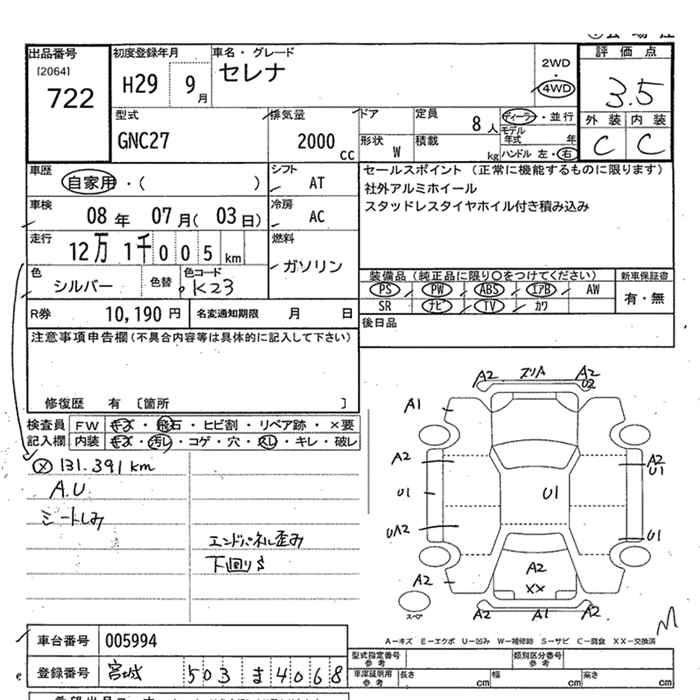 出品番号 [2064] 722
初度登録年月 H29 9月
車名・グレード セレナ
2WD
4WD
評価点 3.5
外装 内装
C C
型式 GNC27
排気量 2000 cc
ドア
形状 W
定員 8人
積載 kg
ディーラー・並行
モデル年式 年
ハンドル 左・右
車歴 自家用・( )
シフト AT
車検 08年 07月(03日)
冷房 AC
走行 12万 1千 0 0 5 km
燃料 ガソリン
色 シルバー 色替 色コード K23
R券 10,190円
名変通知期限 月 日
セールスポイント (正常に機能するものに限ります)
社外アルミホイール
スタッドレスタイヤホイル付き積み込み
装備品 (純正品に限り○をつけてください)
新車保証書
PS PW ABS エアB AW
SR ナビ TV カワ
有・無
後日品
注意事項申告欄(不具合内容等は具体的に記入して下さい)
修復歴 有 [箇所 ]
検査員記入欄
FW キズ・飛石・ヒビ割・リペア跡・×要
内装 キズ・汚レ・コゲ・穴・スレ・キレ・破レ
131.391km
A.U
シートしみ
エンドパネル歪み
下回りS
A2 ズリA A2
U2
A1
A2 A2
U1
U1 U1
UA2 U1
A2 A2
XX
スペア
A2 A1 A2
A-キズ E-エクボ U-凹み W-補修跡 S-サビ C-腐食 XX-交換済
車台番号 005994
登録番号 宮城 503 ま 4068
型式指定番号 参考
類別区分番号 参考
車庫証明用 参考 長さ cm 幅 cm 高さ cm